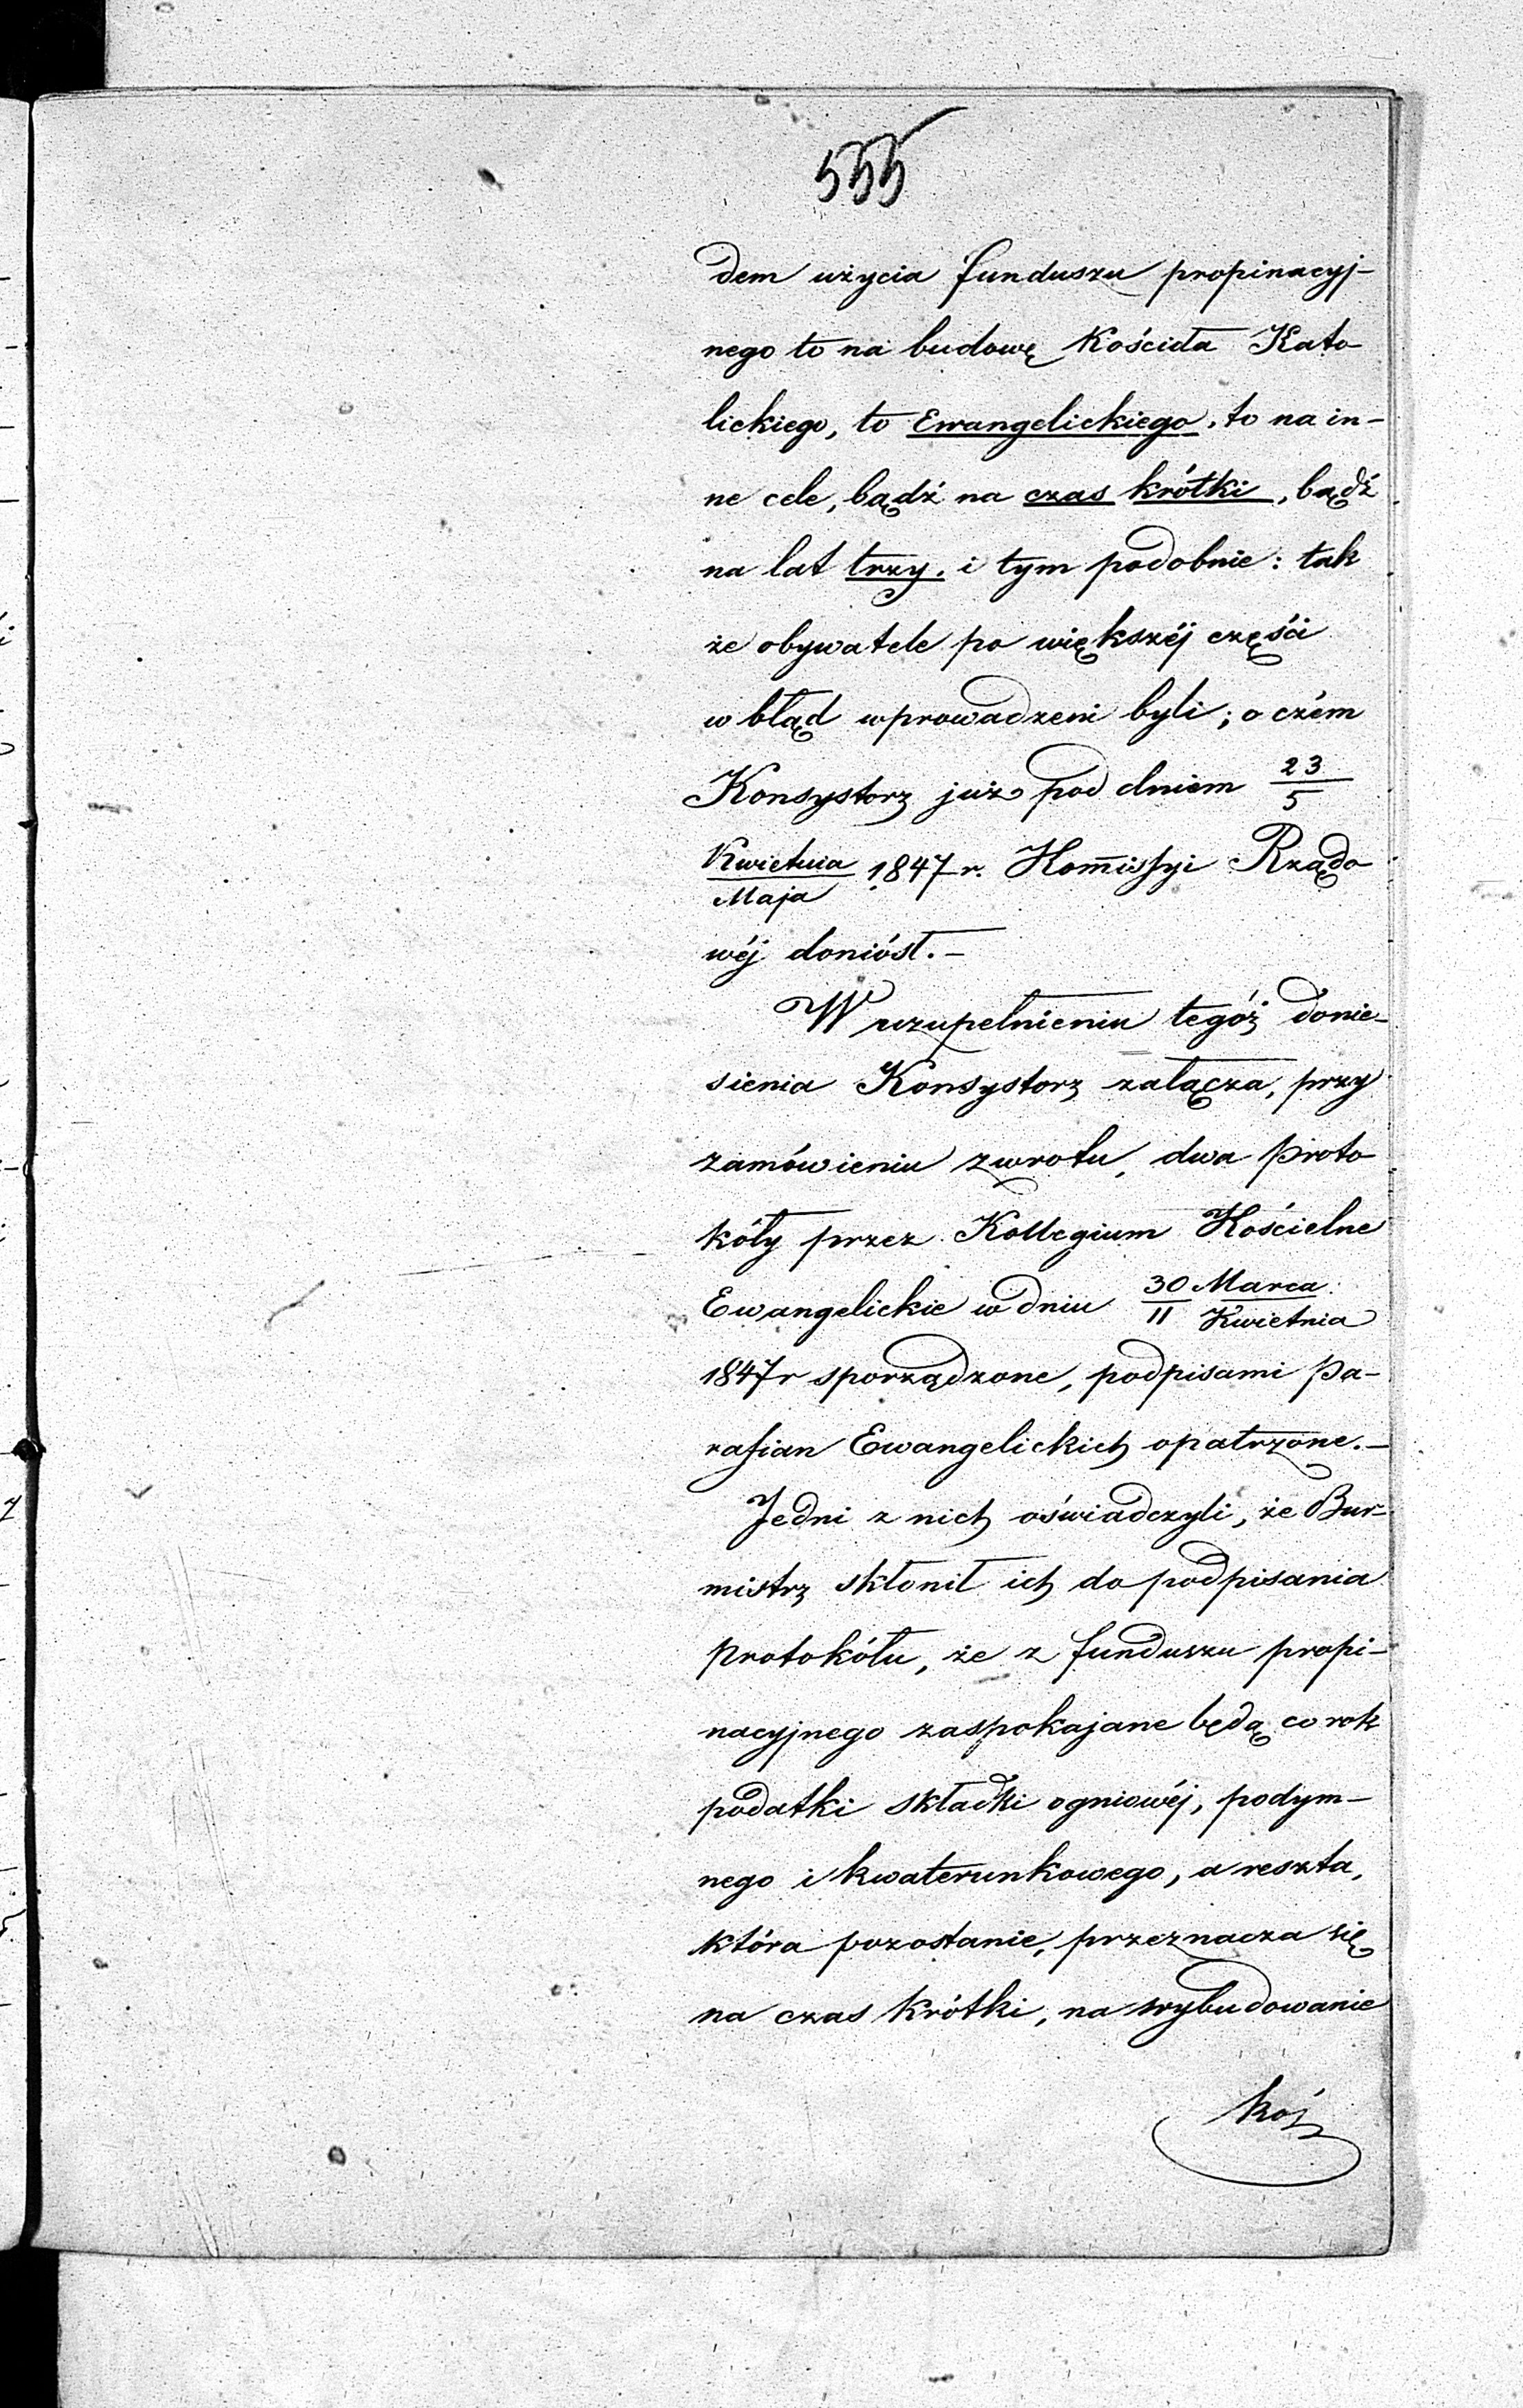 555
dem użycia funduszu propinacyj-
nego to na budowę Kościoła Kato-
lickiego, to Ewangelickiego, to na in-
ne cele, bądź na czas krótki, bądź
na lat trzy. i tym podobnie: tak
że obywatele po większéj części
w błąd wprowadzeni byli; o czém
Konsystorz już pod dniem 23/5
Kwietnia/Maja 1847 r. Kommissyi Rządo
wéj doniósł.-
W uzupełnieniu tegóż donie-
sienia Konsystorz załącza, przy
zamówieniu zwrotu, dwa proto
kóły przez Kollegium Kościelne
Ewangelickie w dniu 30 Marca/11 Kwietnia
1847 r sporządzone, podpisami Pa-
rafian Ewangelickich opatrzone.-
Jedni z nich oświadczyli, że Bur-
mistrz skłonił ich do podpisania
protokółu, że z funduszu propi-
nacyjnego zaspokajane będą co rok
podatki składki ogniowéj, podym-
nego i kwaterunkowego, a reszta,
która pozostanie, przeznacza się
na czas krótki, na wybudowanie
koś